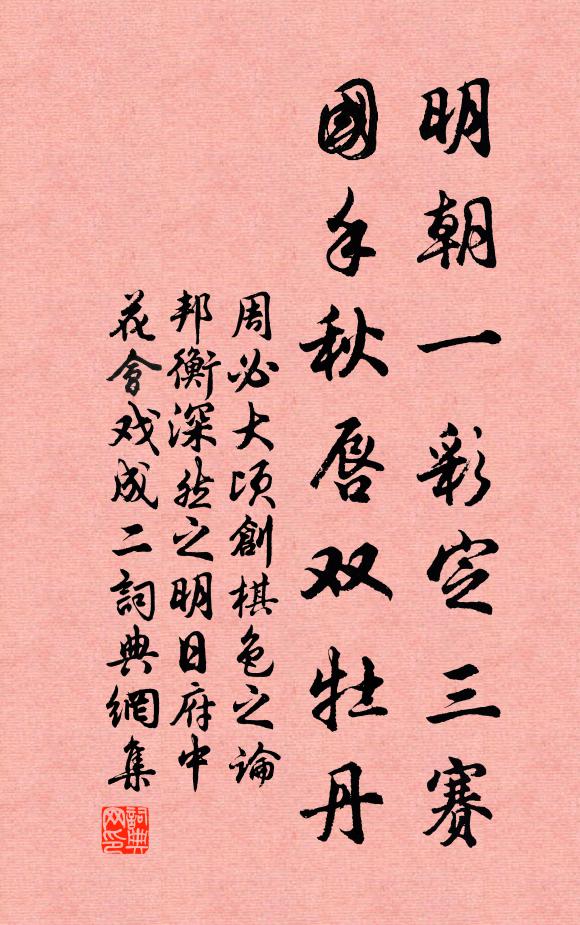 明朝一彩定三賽
國手秋唇双牡丹
周必大頃創棋色之論
邦衡深然之明日府中
花會戏成二詞典網集
詞典网印